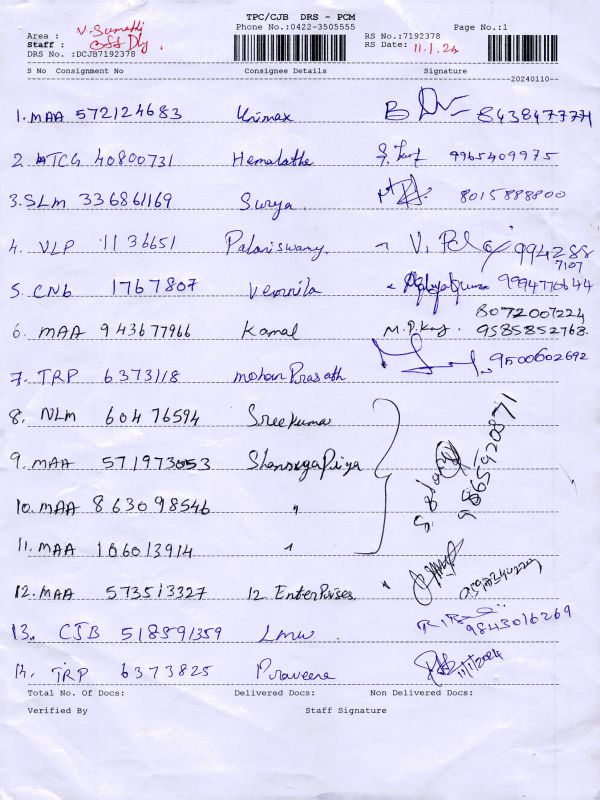 TPC/CJB DRS - PCM
Phone No.:0422-3505555
Page No.:1
Area : V. Sumathi
Staff :
DRS No. :DCJB7192378
RS No.:7192378
RS Date: 11.1.24
S No Consignment No Consignee Details Signature
20240110
1. MAA 572124683 Unimax 8438477771
2. TCG 40800731 Hemalatha 9965409975
3. SLM 336861169 Surya 8015888800
4. VLP 1136651 Palaniswamy 994288 7107
5. CNB 1767807 Vennila 9994770644
6. MAA 943677966 Kamal M.P. 8072007224 9585852768
7. TRP 6373118 Mohan Prasath 9500602692
8. NLM 60476594 Sreekumar
9. MAA 571973053 9865920871
10. MAA 863098546 "
11. MAA 106013914 "
12. MAA 573513327 12 Enterprises
13. CJB 518591359 Lmw 9843016269
14. TRP 6373825 Praveena 11/1/2024
Total No. Of Docs: Delivered Docs: Non Delivered Docs:
Verified By Staff Signature